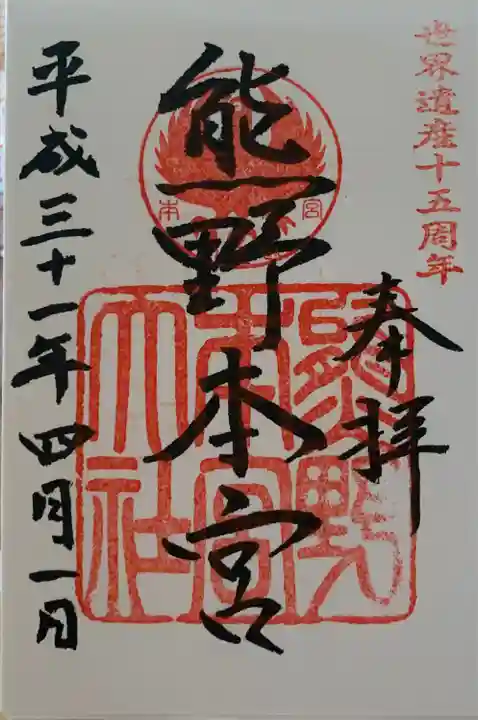 世界遺産十五周年
奉拝
熊野本宮
本宮
熊野
本宮
大社
平成三十一年四月一日